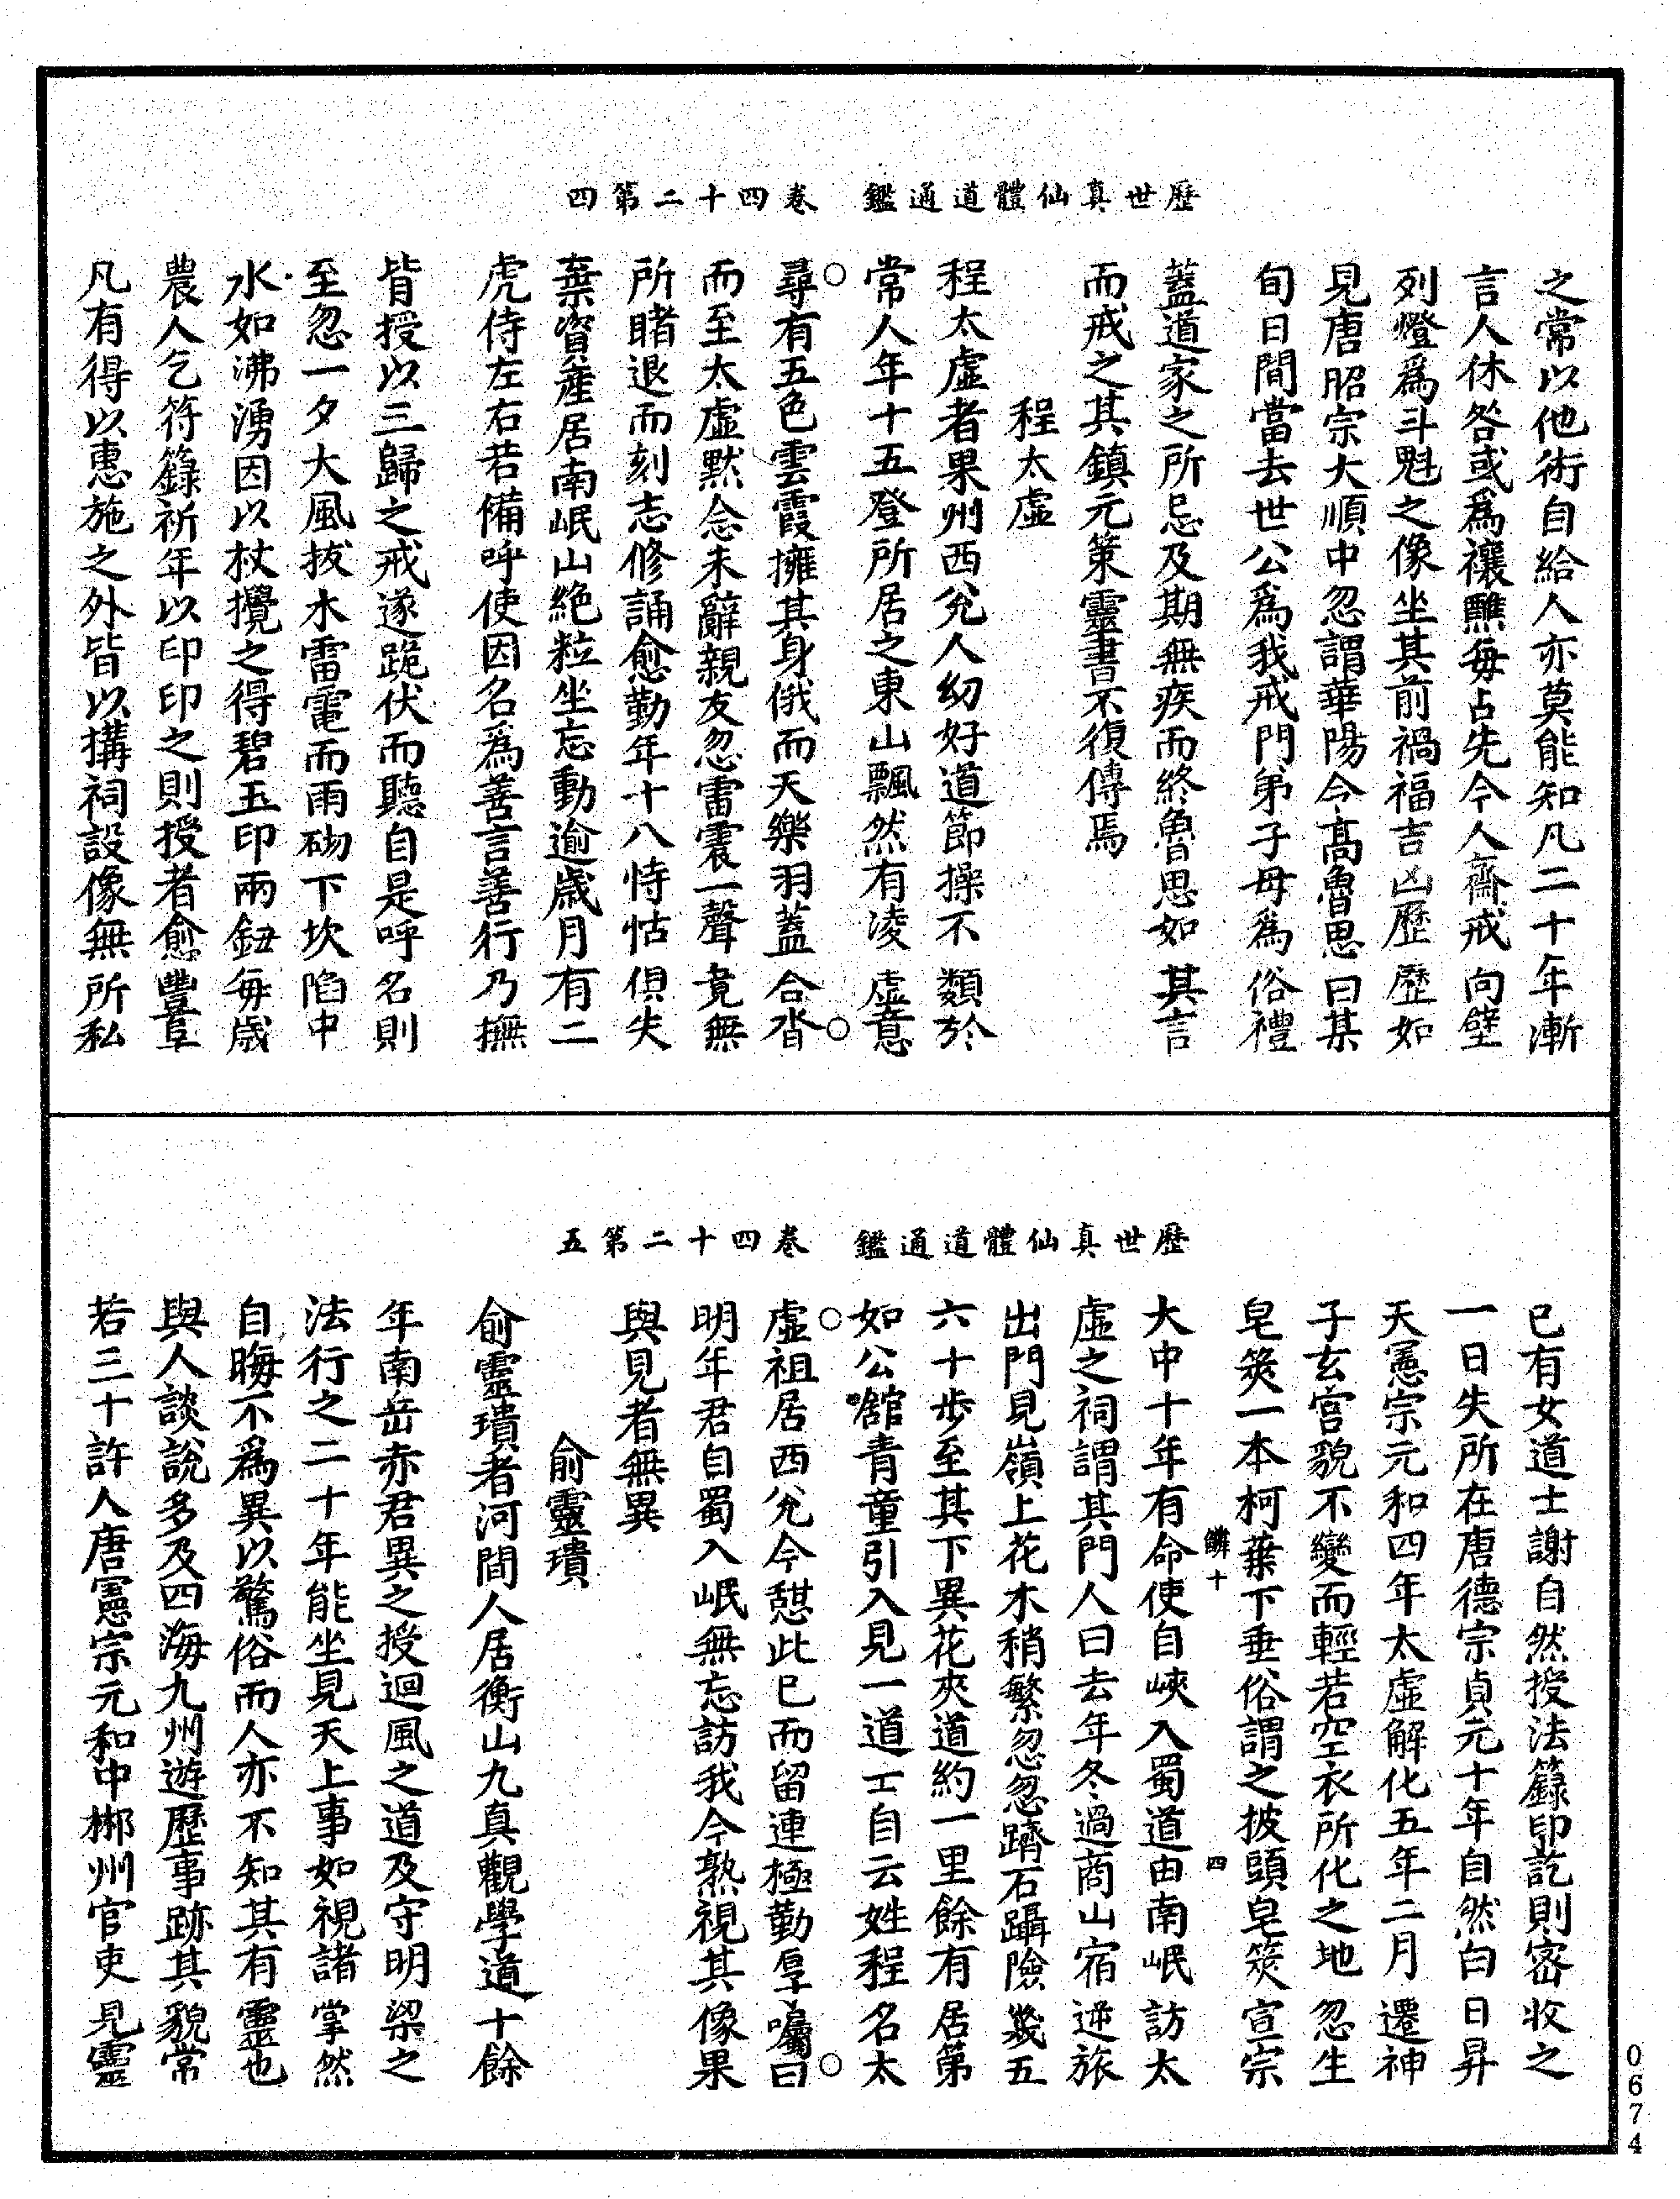 歷世真仙體道通鑑　卷四十二第四
之常以他術自給人亦莫能知凡二十年漸
言人休咎或為禳醮每占先令人齋戒向壁
列燈為斗魁之像坐其前禍福吉凶歷歷如
見唐昭宗大順中忽謂華陽令高魯思曰某
旬日間當去世公為我戒門弟子毋為俗禮
蓋道家之所忌及期無疾而終魯思如其言
而戒之其鎮元策靈書不復傳焉
程太虛
程太虛者果州西兊人幼好道節操不類於
常人年十五登所居之東山飄然有凌虛意
尋有五色雲霞擁其身俄而天樂羽蓋合沓
而至太虛默念未辭親友忽雷震一聲竟無
所睹退而刻志修誦愈勤年十八恃怙俱失
棄資產居南岷山絕粒坐忘動逾歲月有二
虎侍左右若備呼使因名為善言善行乃撫
皆授以三歸之戒遂跪伏而聽自是呼名則
至忽一夕大風拔木雷電而雨砌下坎陷中
水如沸湧因以杖攪之得碧玉印兩鈕每歲
農人乞符籙祈年以印印之則授者愈豐阜
凡有得以惠施之外皆以搆祠設像無所私
歷世真仙體道通鑑　卷四十二第五
已有女道士謝自然授法籙印訖則密收之
一日失所在唐德宗貞元十年自然白日昇
天憲宗元和四年太虛解化五年二月遷神
子玄宮貌不變而輕若空衣所化之地忽生
皂筴一本柯葉下垂俗謂之披頭皂筴宣宗
鱗十　四
大中十年有命使自峽入蜀道由南岷訪太
虛之祠謂其門人曰去年冬過商山宿逆旅
出門見嶺上花木稍繁忽忽躋石躡險幾五
六十步至其下異花夾道約一里餘有居第
如公舘青童引入見一道士自云姓程名太
虛祖居西兊今憇此已而留連極勤厚囑曰
明年君自蜀入岷無忘訪我今熟視其像果
與見者無異
俞靈璝
俞靈璝者河間人居衡山九真觀學道十餘
年南岳赤君異之授迴風之道及守明梁之
法行之二十年能坐見天上事如視諸掌然
自晦不為異以驚俗而人亦不知其有靈也
與人談說多及四海九州遊歷事跡其貌常
若三十許人唐憲宗元和中郴州官吏見靈
0674